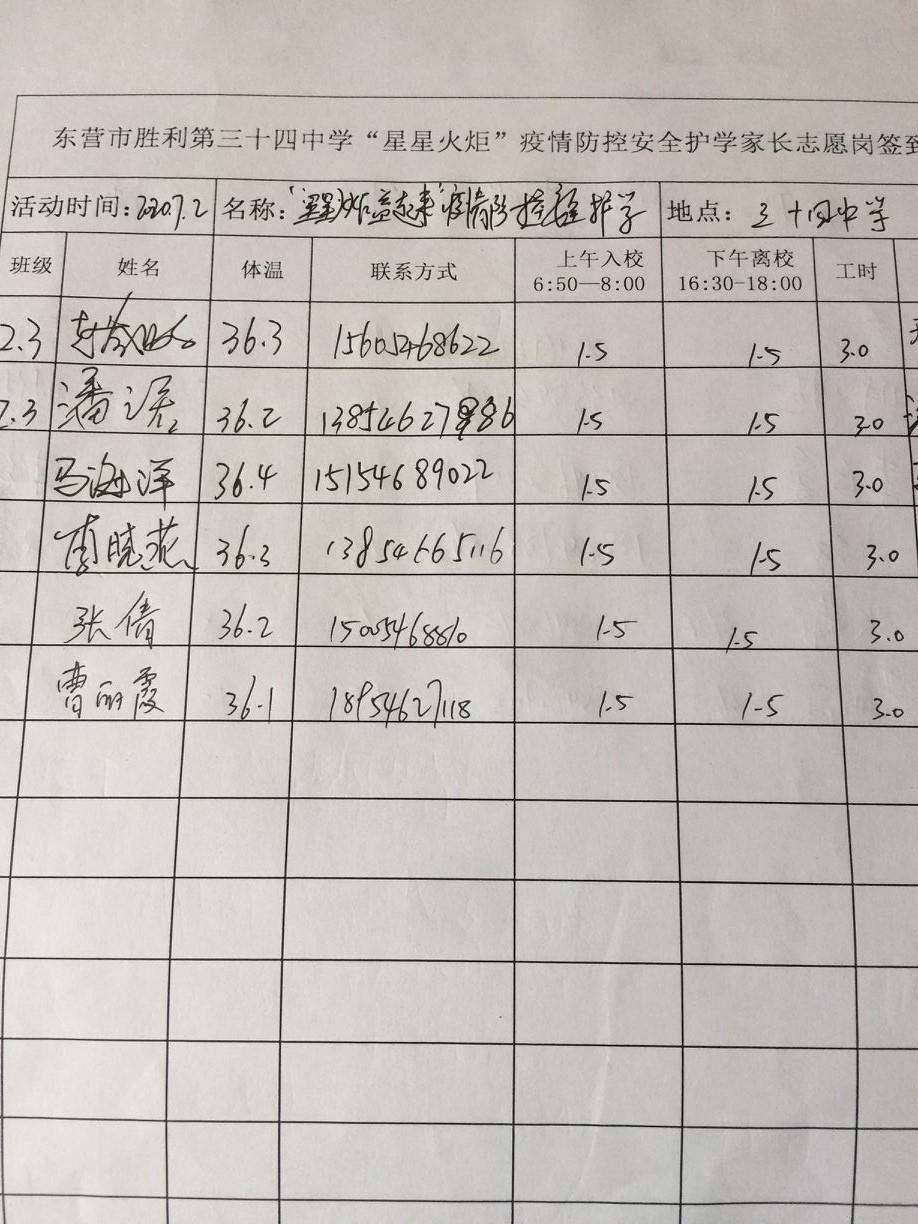 东营市胜利第三十四中学“星星火炬”疫情防控安全护学家长志愿岗签到
活动时间:2020.7.2 名称:“星星火炬益起来”疫情防控安全护学 地点: 三十四中学
班级 姓名 体温 联系方式 上午入校 6:50—8:00 下午离校 16:30-18:00 工时
2.3 36.3 15605468622 1.5 1.5 3.0
2.3 潘 36.2 1.5 1.5 3.0
马海洋 36.4 15154689022 1.5 1.5 3.0
李晓燕 36.3 13854665116 1.5 1.5 3.0
张倩 36.2 15005468810 1.5 1.5 3.0
曹丽霞 36.1 18954627118 1.5 1.5 3.0